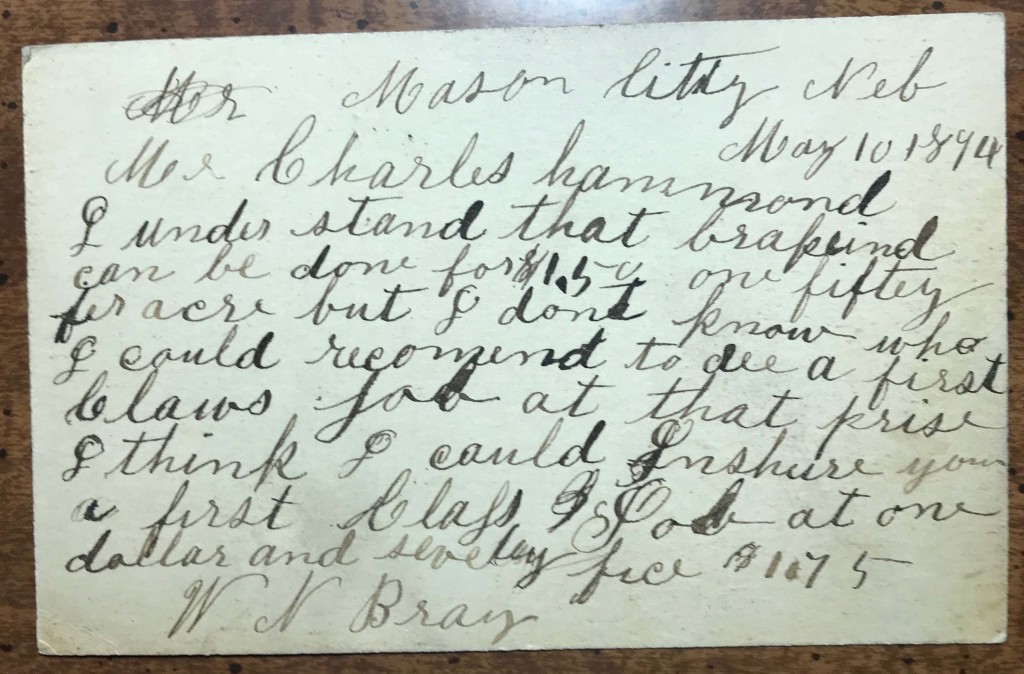 Mr Mason Citty Neb
May 10 1894
Mr Charles hammrond
I under stand that brakeind
can be done for $1.50 one fiftey
per acre but I dont know who
I could recomend to dee a first
Claws job at that prise
I think I could Inshure you
a first Class Job at one
dollar and sevetey fice $1.75
W N Bray